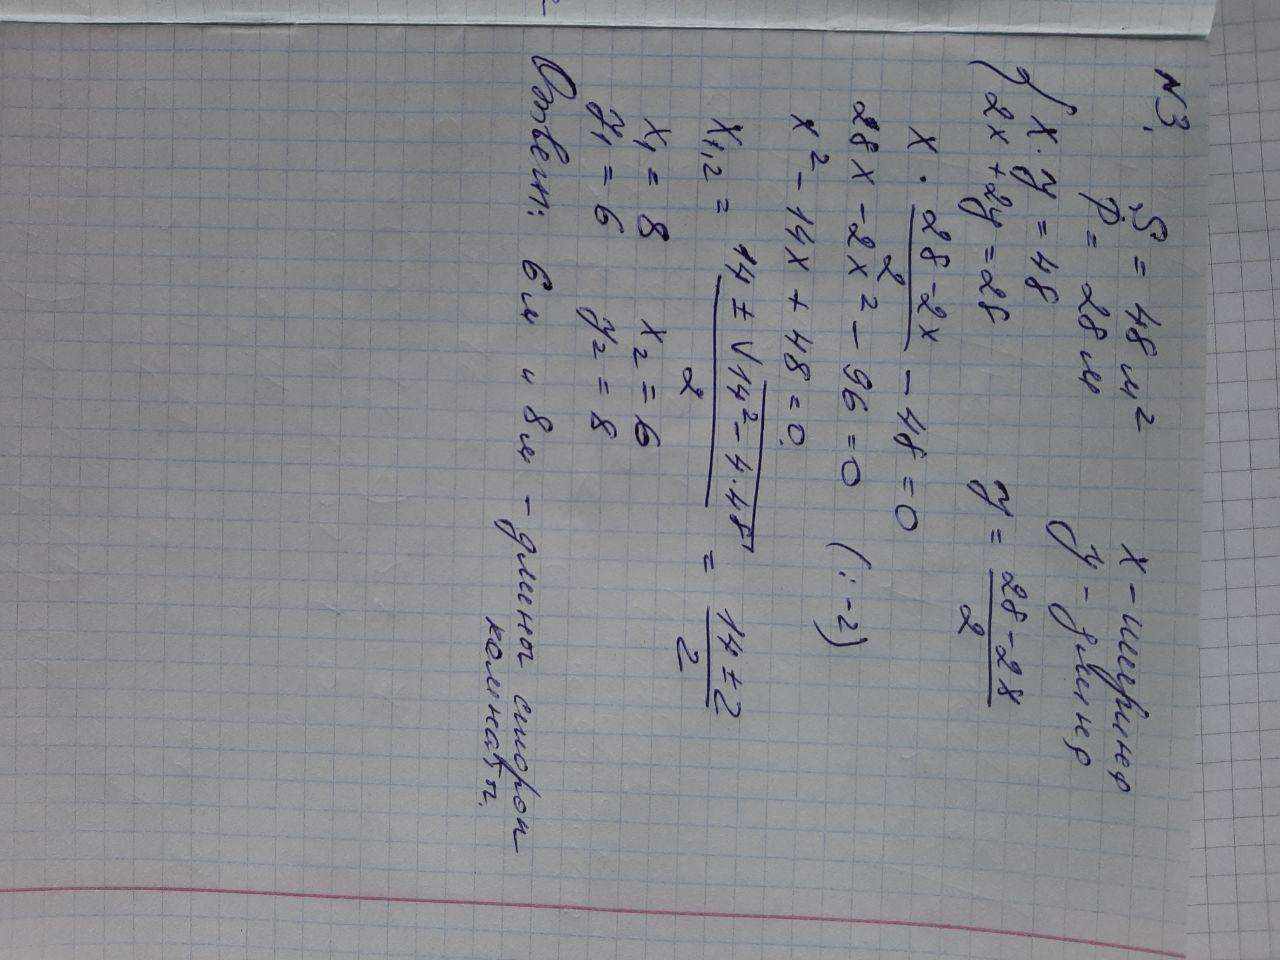 №3.
S = 48 м² x – ширина
P = 28 м y – длина
{ x · y = 48
2x + 2y = 28 y = (28 - 2x)/2
x · (28 - 2x)/2 - 48 = 0
28x - 2x² - 96 = 0 (: -2)
x² - 14x + 48 = 0
x₁,₂ = (14 ± √(14² - 4·48))/2 = (14 ± 2)/2
x₁ = 8 x₂ = 6
y₁ = 6 y₂ = 8
Ответ: 6 м и 8 м – длины сторон
комнаты.